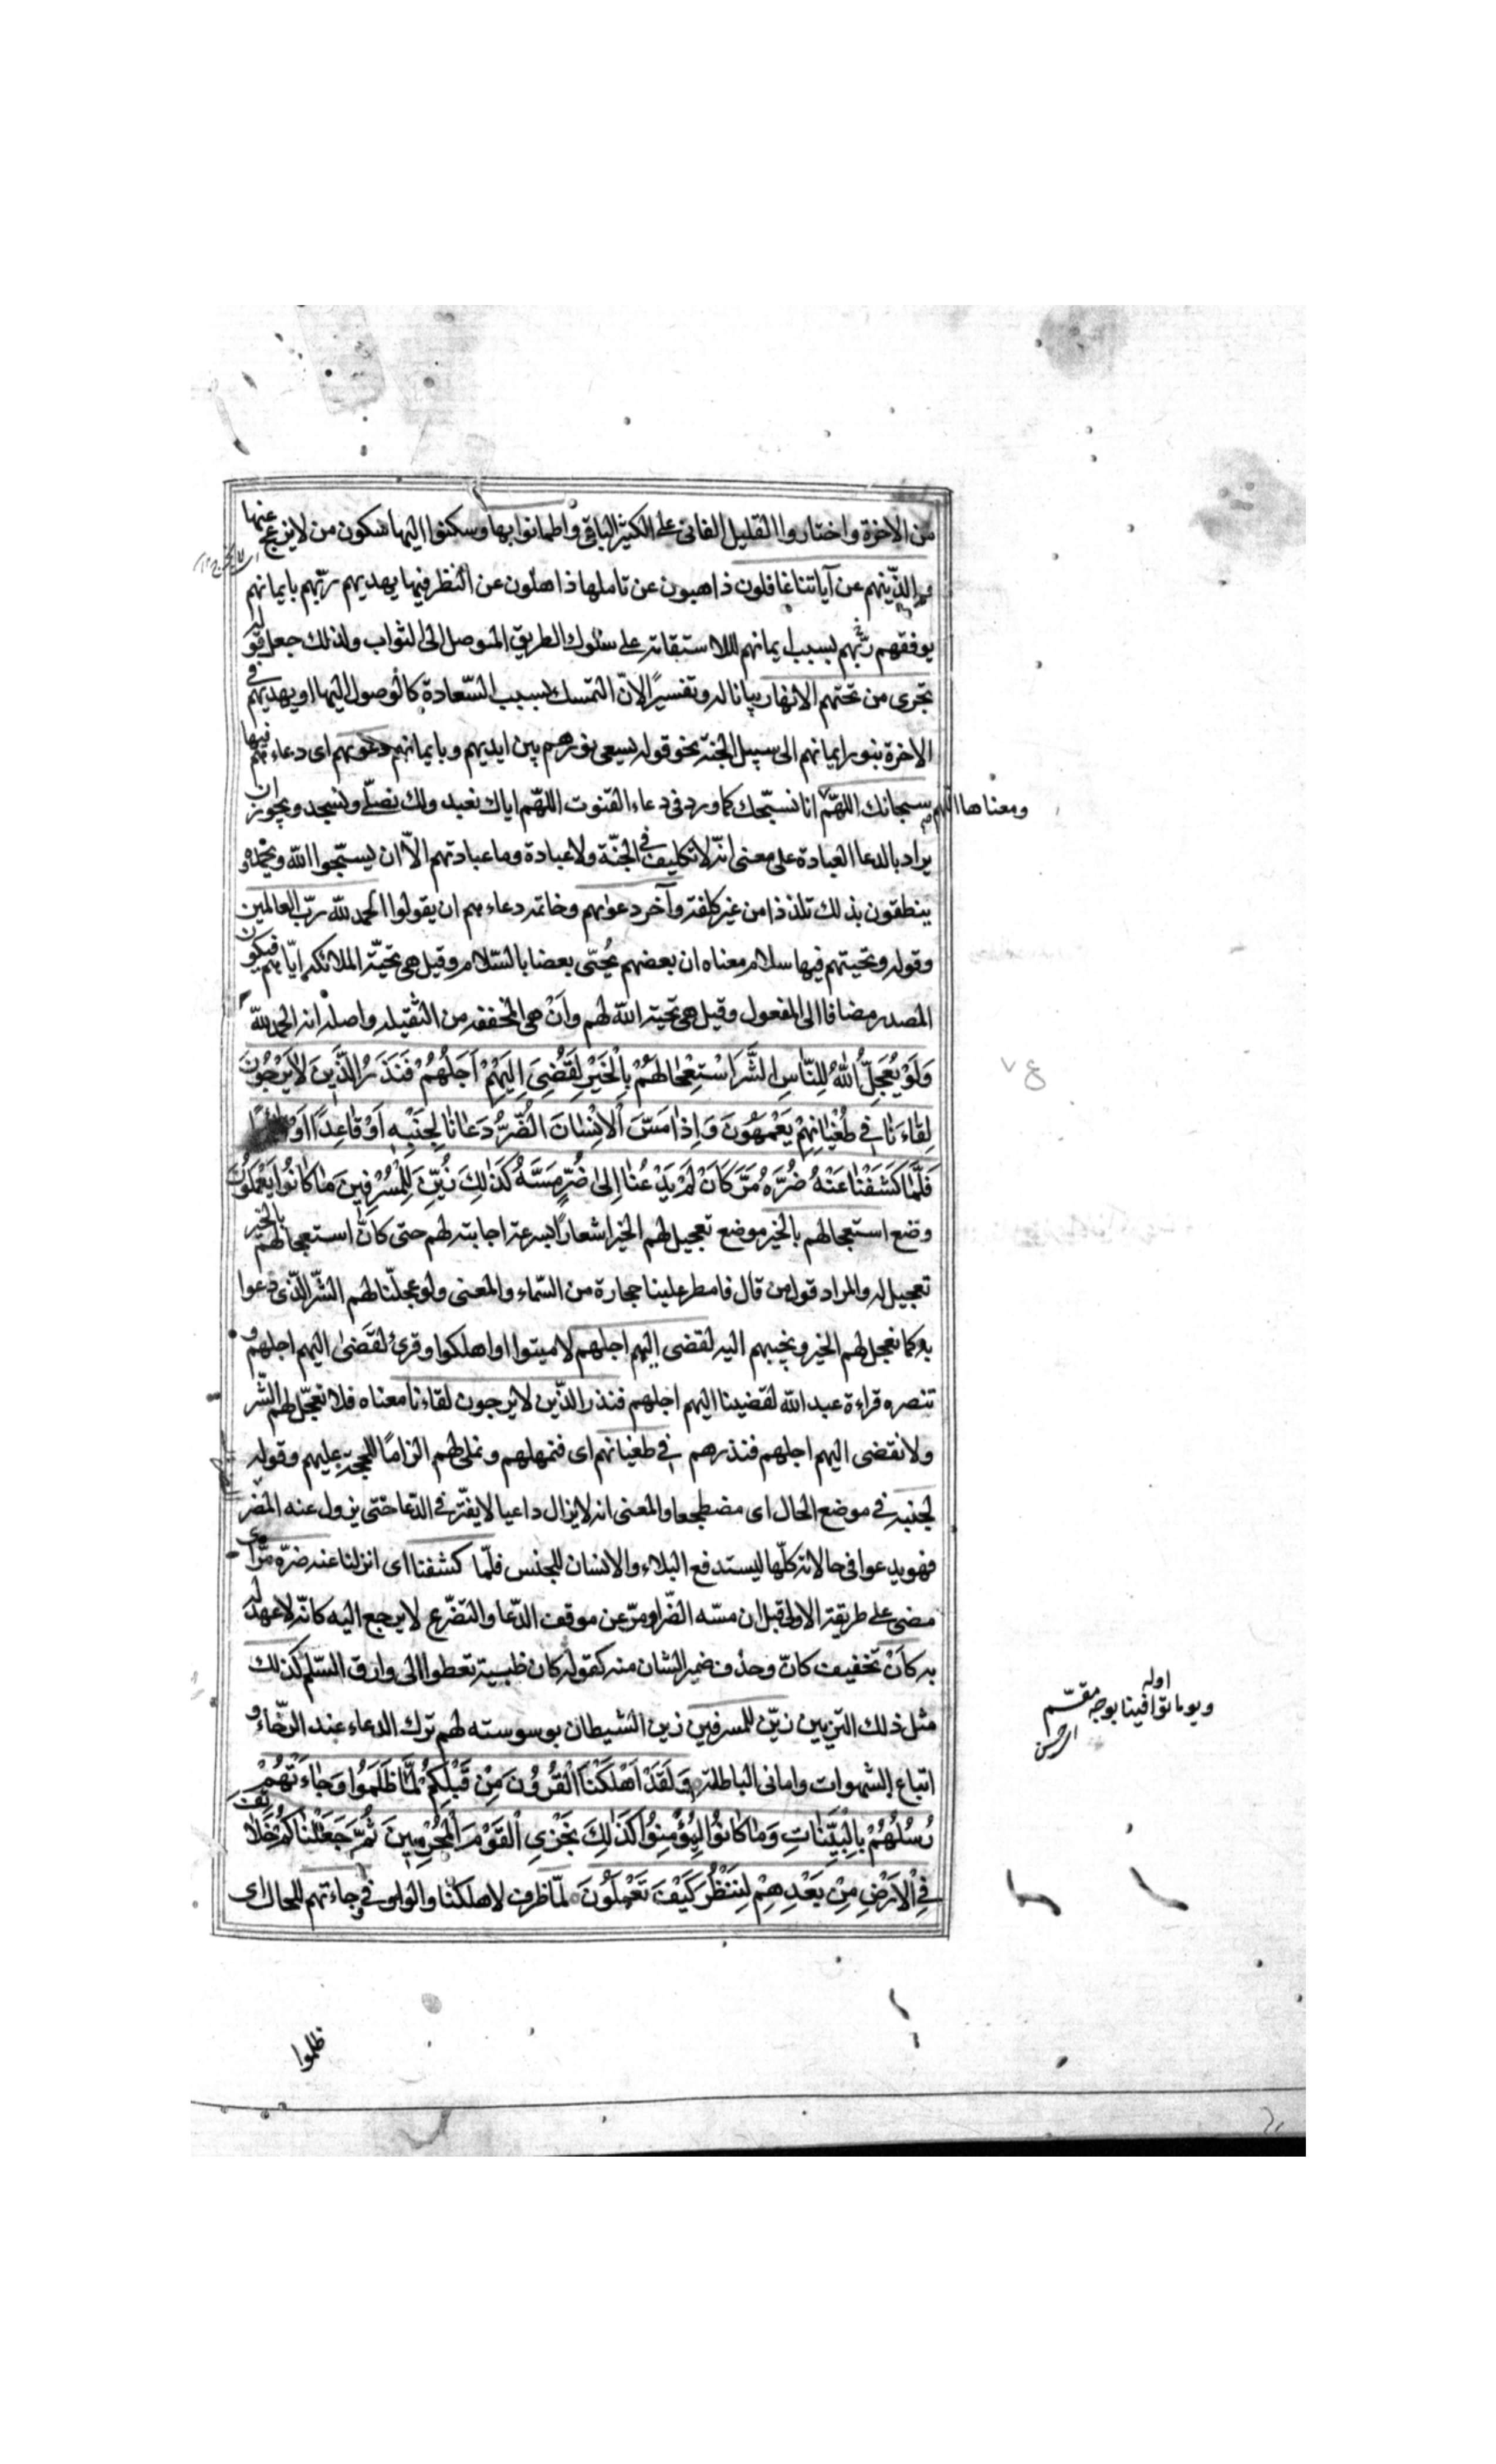 من الاخرة واختاروا القليل الفانى على الكثير الباقى واطمانوا بها وسكنوا اليها سكون من لا ينزعج عنها
والذينهم عن آياتنا غافلون ذاهبون عن تاملها ذاهلون عن النظر فيها يهديهم ربّهم بايمانهم
يوفقهم ربّهم بسبب ايمانهم للاستقامة على سلوك الطريق الموصل الى الثواب ولذلك جعل قوله
تجرى من تحتهم الانهار بيانا له وتفسيرًا لانّ التمسك بسبب السّعادة كالوصول اليها او يهديهم فى
الاخرة بنور ايمانهم الى سبيل الجنة نحو قوله يسعى نورهم بين ايديهم وبايمانهم دعويهم اى دعاءهم فيها
سبحانك اللهمّ انا نسبّحك كما ورد فى دعاء القنوت اللهّم اياك نعبد ولك نصلّى ونسجد ويجوز ان
ومعناها اللهم
يراد بالدعا العبادة على معنى انّه لا تكليف فى الجنّة ولا عبادة وما عبادتهم الاّ ان يسبّحوا الله ويحمدوه
ينطقون بذلك تلذذا من غير كلفة وآخر دعواهم وخاتمه دعاءهم ان يقولوا الحمد للّه ربّ العالمين
وقوله وتحيتهم فيها سلام معناه ان بعضهم يُحيّى بعضا بالسّلام وقيل هى تحيّة الملائكه ايّاهم فيكون
المصدر مضافا الى المفعول وقيل هى تحية الله لهم وأنْ هى المخففه من الثقيله واصله انه الحمد للّه
وَلَوْ يُعَجِلُّ اللهُ لِلنّاسِ الشَّرَ اسْتِعْجالَهُمْ بِالْخَيْرِ لَقُضِىَ اِلَيْهِمْ اَجَلُهُمْ فَنَذَرُ الَّذّينَ لا يَرْجُونَ
لِقاءَنا فى طُغْيانِهِمْ يَعْمَهُونَ وَاِذا مَسَّ الْانْسانَ الضُّرُّ دَعانا لِجَنْبِهِ اَوْ قاعِدًا اَوْ قائِمًا
فَلَّما كَشَفْنا عَنْهُ ضُرَّهُ مَرَّ كَاَنْ لَمْ يَدْعُنا اِلى ضُرٍّ مَسَّهُ كَذلِكَ زُيِّنَ لِلْمُسْرِفينَ ما كانُوا يَعْمَلُونَ
وضع استعجالهم بالخير موضع تعجيل لهم الخير اشعارًا بسرعة اجابته لهم حتى كانّ استعجالهم بالخير
تعجيل له والمراد قول من قال فامطر علينا حجارة من السّماء والمعنى ولو عجلنا لهم الشّر الذّى دعوا
به كما نعجل لهم الخير ونجيبهم اليه لقضى اليهم اجلهم لاميتوا او اهلكوا وقرئ لقَضىٰ اليهم اجلهم و
تنصره قراءة عبد الله لقضينا اليهم اجلهم فنذر الذّين لا يرجون لقاءنا معناه فلا نعجّل لهم الشّر
ولا نقضى اليهم اجلهم فنذرهم فى طغيانهم اى فنمهلهم ونملى لهم الزامًا للحجّة عليهم وقوله
لجنبه فى موضع الحال اى مضطجعا والمعنى انه لا يزال داعيا لا يفتّر فى الدّعا حتى يزول عنه الضر
فهو يدعوا فى حالاته كلّها ليستدفع البلاء والانسان للجنس فلمّا كشفنا اى ازلنا عنه ضرّه مرّ اى
مضى على طريقته الاولى قبل ان مسّه الضّر او مرّ عن موقف الدّعا والتضرّع لا يرجع اليه كانّه لا عهد له
به كأنْ تخفيف كانّ وحذف ضمير الشان منه كقوله كان ظبية تعطوا الى وارق السّلم كذلك
مثل ذلك التزيين زيّن للمسرفين زين الشيطان بوسوسته لهم ترك الدعاء عند الرخّاء و
اولـه
ويوما توافينا بوجه مقسّم
اتباع الشهوات وامانى الباطلة وَلَقَدْ اَهْلَكْنَا الْقُرُونَ مِنْ قَبْلِكُمْ لَمَّا ظَلَمُوا وَجاءَتْهُمْ
رُسُلُهُمْ بِالْبَيِّناتِ وَما كانُوا لِيُؤْمِنُوا كَذلِكَ نَجْزىِ الْقَوْمَ الْمُجْرِمينَ ثُمَّ جَعَلْناكُمْ خَلائِفَ
فِى الْاَرْضِ مِنْ بَعْدِهِمْ لِنَنْظُرَ كَيْفَ تَعْمَلُونَ لمّا ظرف لاهلكنا والواو فى وجاءتهم للحال اى
ظلموا